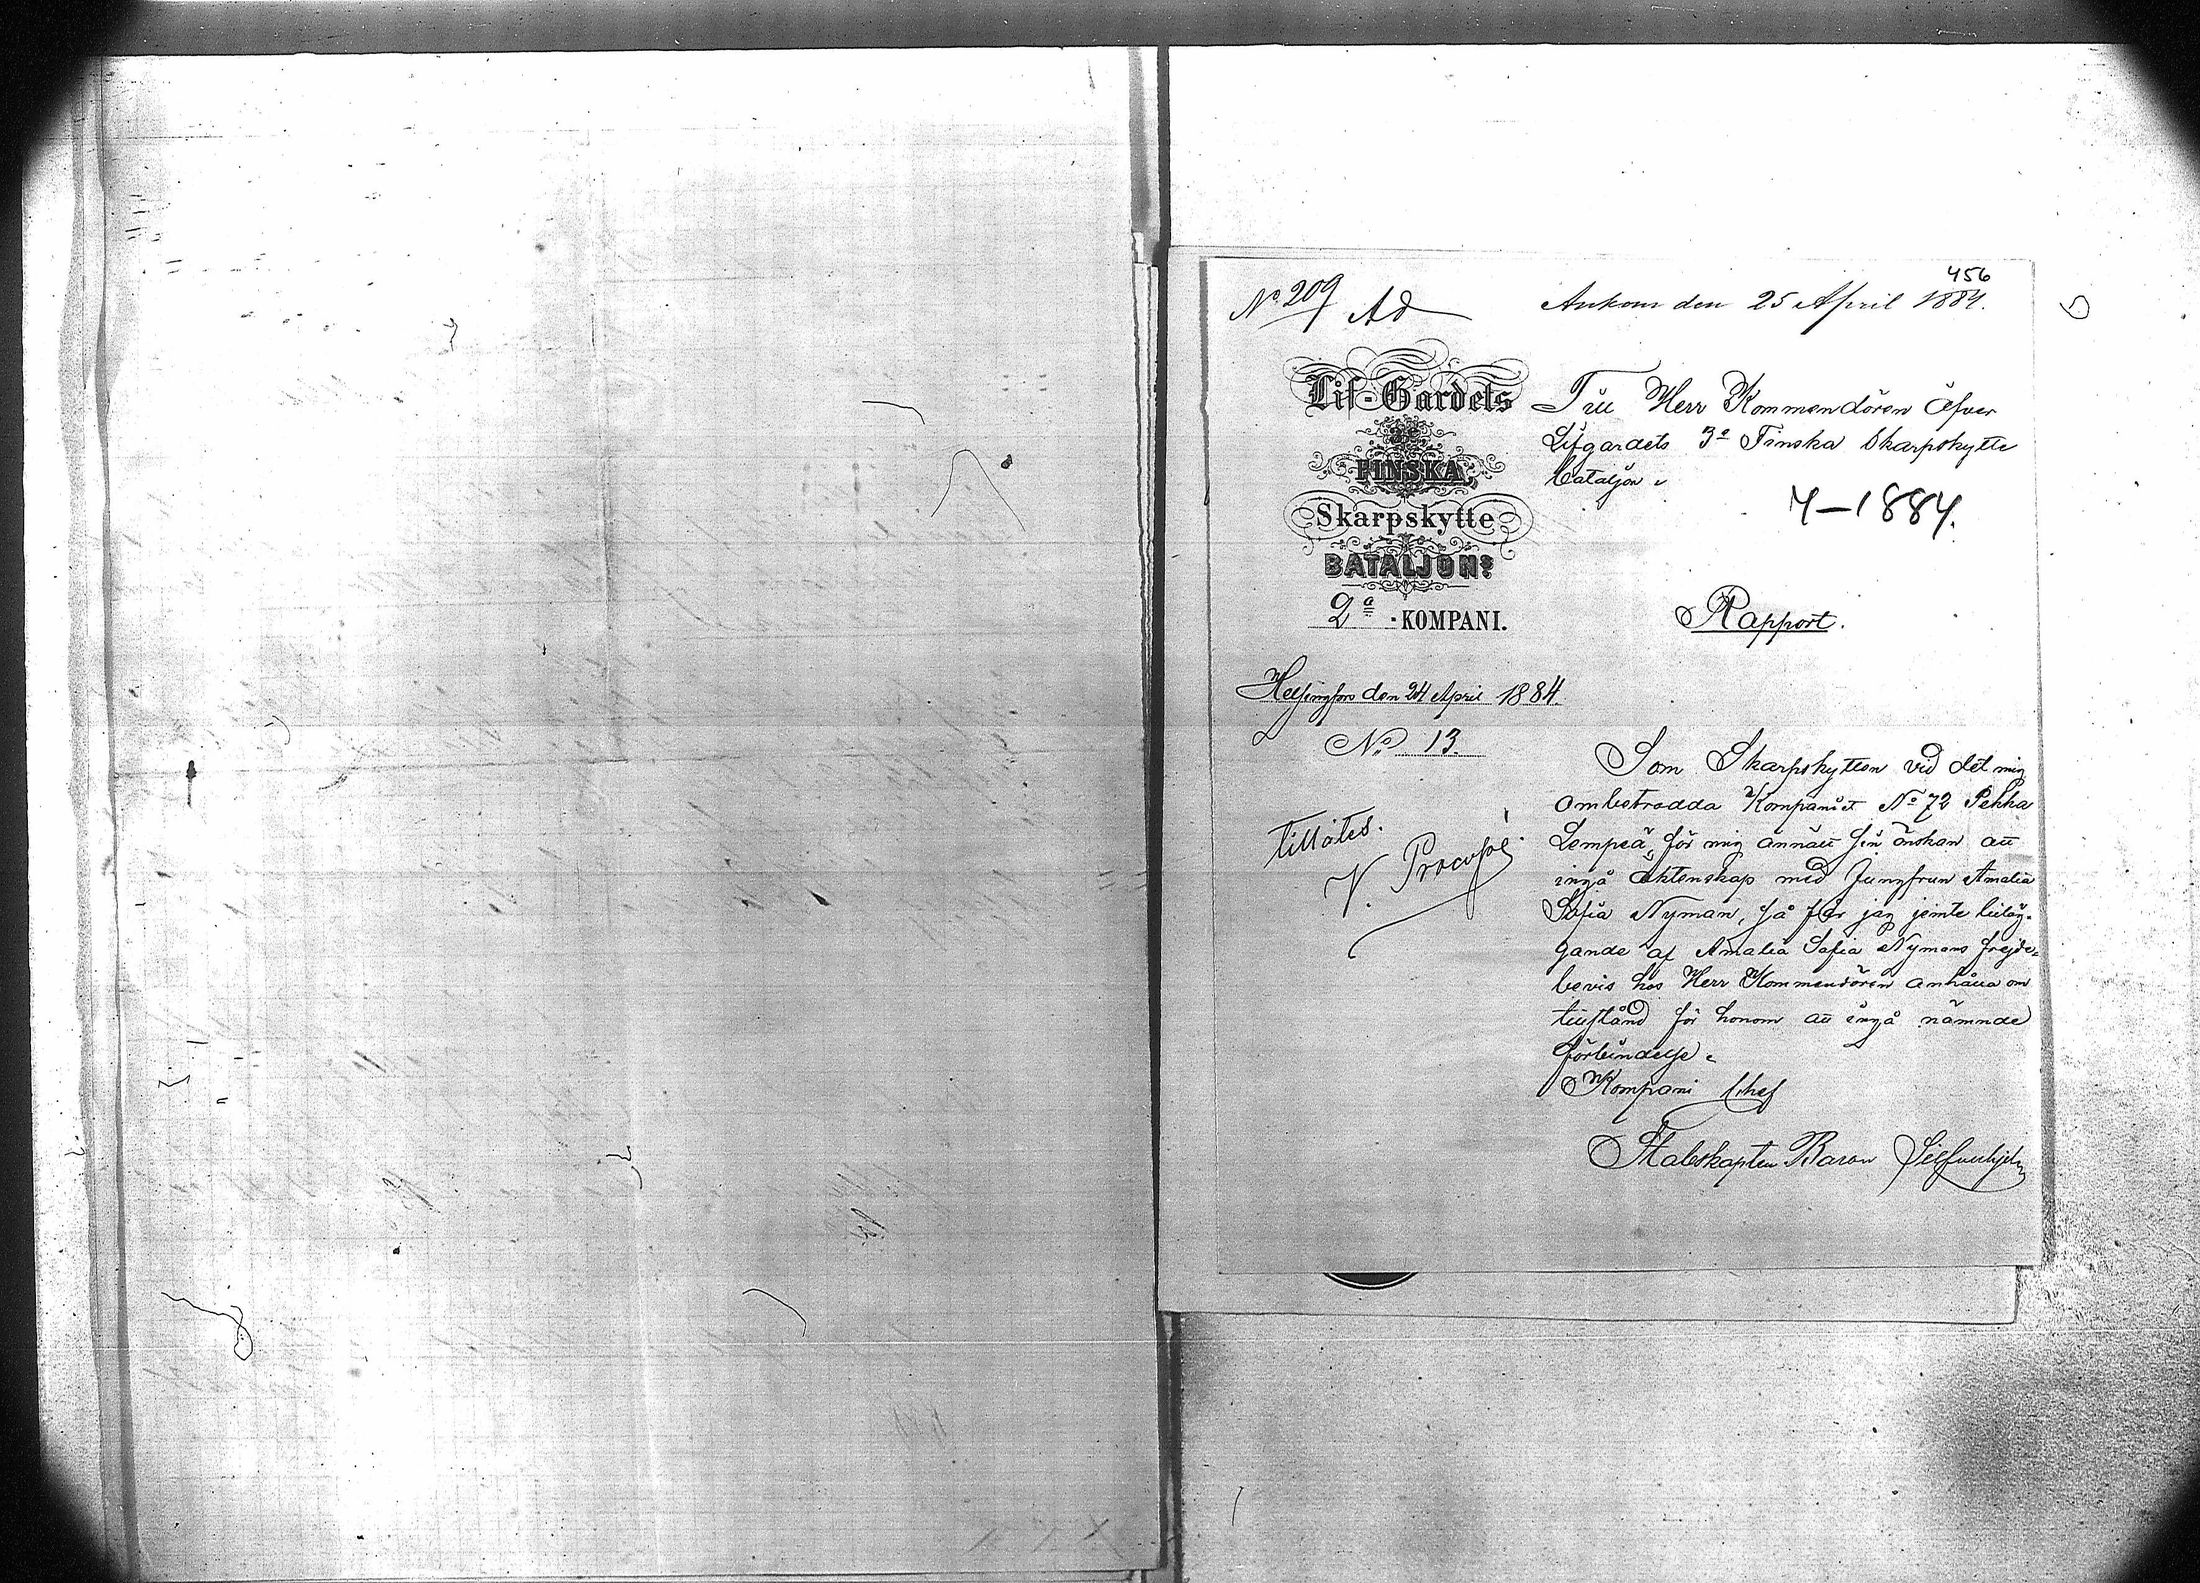 456
No 209 Ad
Ankom den 25 April 1884.
Lif-Gardets
3e
FINSKA
Skarpskytte
BATALJONs
2a - KOMPANI.
Helsingfors den 24 April 1884.
No 13.
Tillåtes.
V. Procopé.
Till Herr Kommendören öfver
Lifgardets 3e Finska Skarpskytte
bataljon.
4-1884.
Rapport.
Som Skarpskytten vid det mig
ombetrodda Kompaniet No 72 Pekka
Lempeä, för mig anmält sin önskan att
ingå äktenskap med Jungfrun Amalia
Sofia Nyman, så får jag jemte biläg-
gande af Amalia Sofia Nymans frejde-
bevis hos Herr Kommendören anhålla om
tillstånd för honom att ingå nämnde
förbindelse.
Kompani Chef
Stabskapten Baron Silfverhjelm